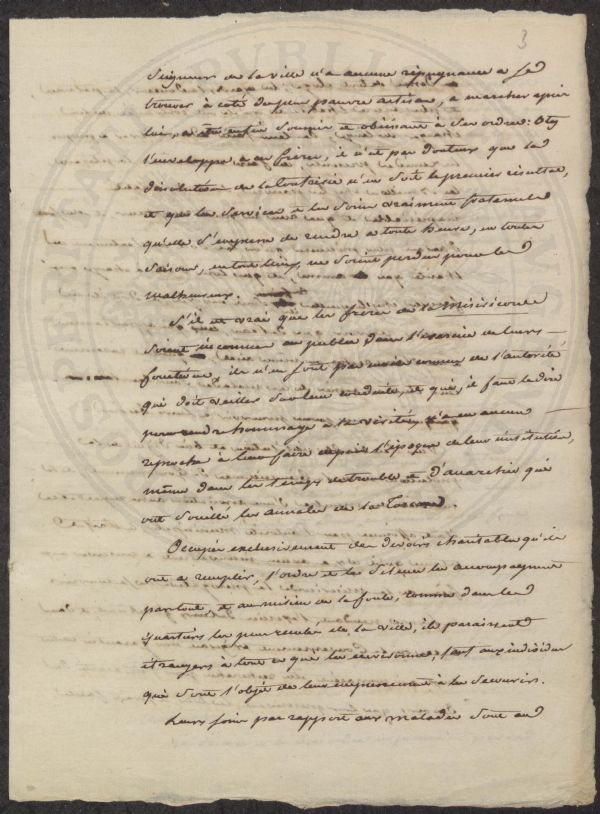 3
Seigneur de la ville n'a aucune répugnance à se
trouver à coté du plus pauvre artisan, a marcher après
lui, a etre enfin soumis et obéissant à ses ordres:
l'enveloppe a un frère, il n'est pas douteux que la
dissolution de la n'en soit le premier résultat,
et que les services et les soins vraiment fraternels
qu'elle s'empresse de rendre a toute heure, en toutes
saisons, en tous lieux, ne soient perdus pour les
malheureux.
S'il est vrai que les frères de la Miséricorde
soient inconnus au public dans l'exercice de leurs
fonctions, ils n'en sont pas moins connus de l'autorité
qui doit veiller sur leur conduite, et qui, il faut le dire
pour rendre hommage à la vérité, n'a eu aucun
reproche à leur faire depuis l'époque de leur institution,
même dans les temps de trouble et D'anarchie qui
ont souillé les annales de la Toscane.
Occupés exclusivement des devoirs charitables qu'ils
ont a remplir, l'ordre et le silence les accompagnent
partout, et au milieu de la foule, comme dans les
quartiers les plus reculés de la ville, ils paraissent
étrangers à tout ce qui les environne, sauf aux individus
qui sont l'objet de leur empressement à les secourir.
Leurs soins par rapport aux malades sont aud